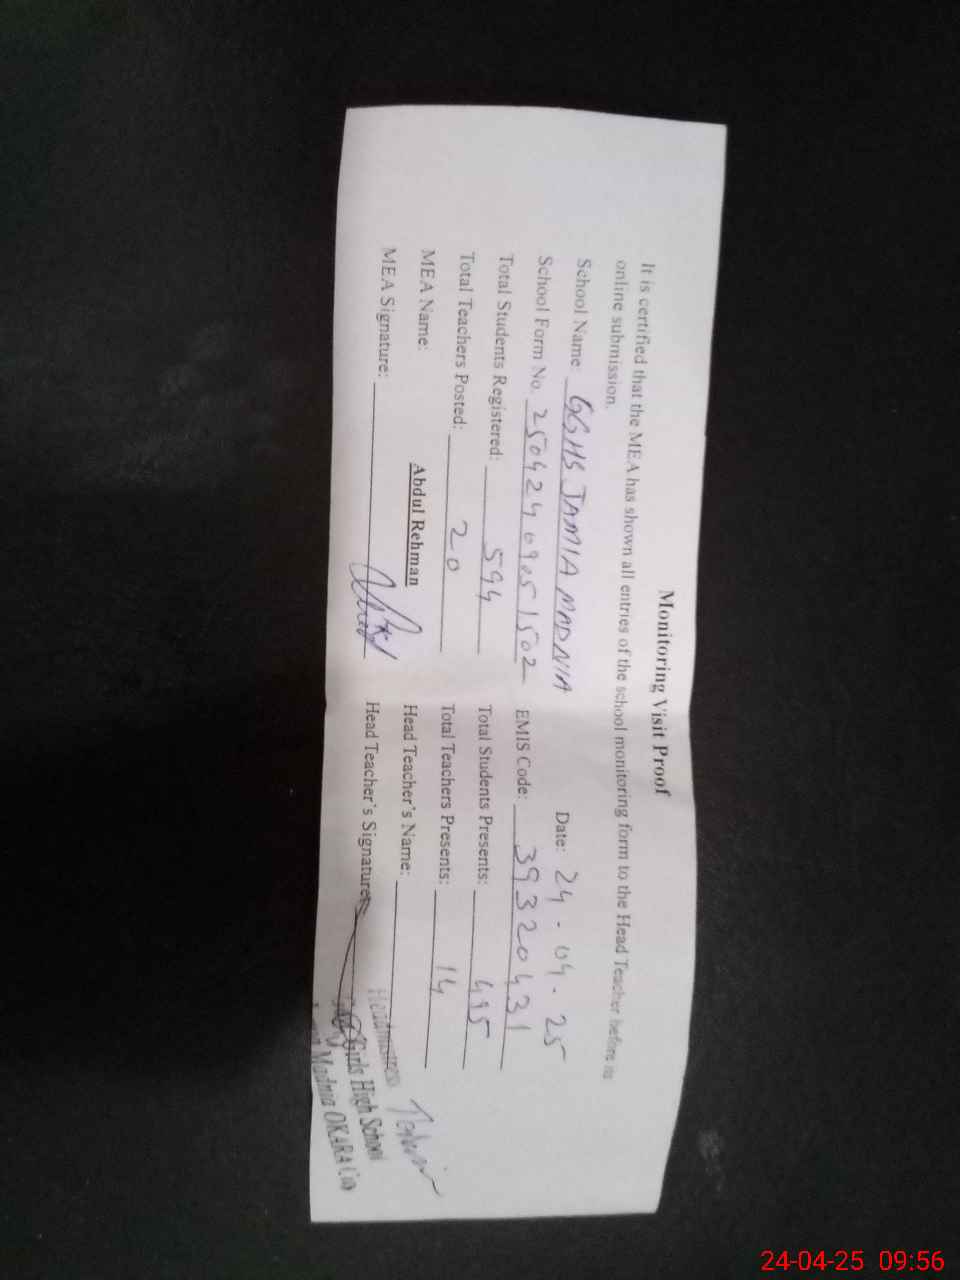 Monitoring Visit Proof
It is certified that the MEA has shown all entries of the school monitoring form to the Head Teacher before its
online submission.
Date: 24-04-25
School Name: GGHS JAMIA MADNIA
School Form No. 25042409051502 EMIS Code: 39320431
Total Students Registered: 594 Total Students Presents: 495
Total Teachers Posted: 20 Total Teachers Presents: 14
MEA Name: Abdul Rehman Head Teacher's Name:
MEA Signature: Head Teacher's Signature:
Headmistress
Girls High School
Madnia OKARA
24-04-25 09:56